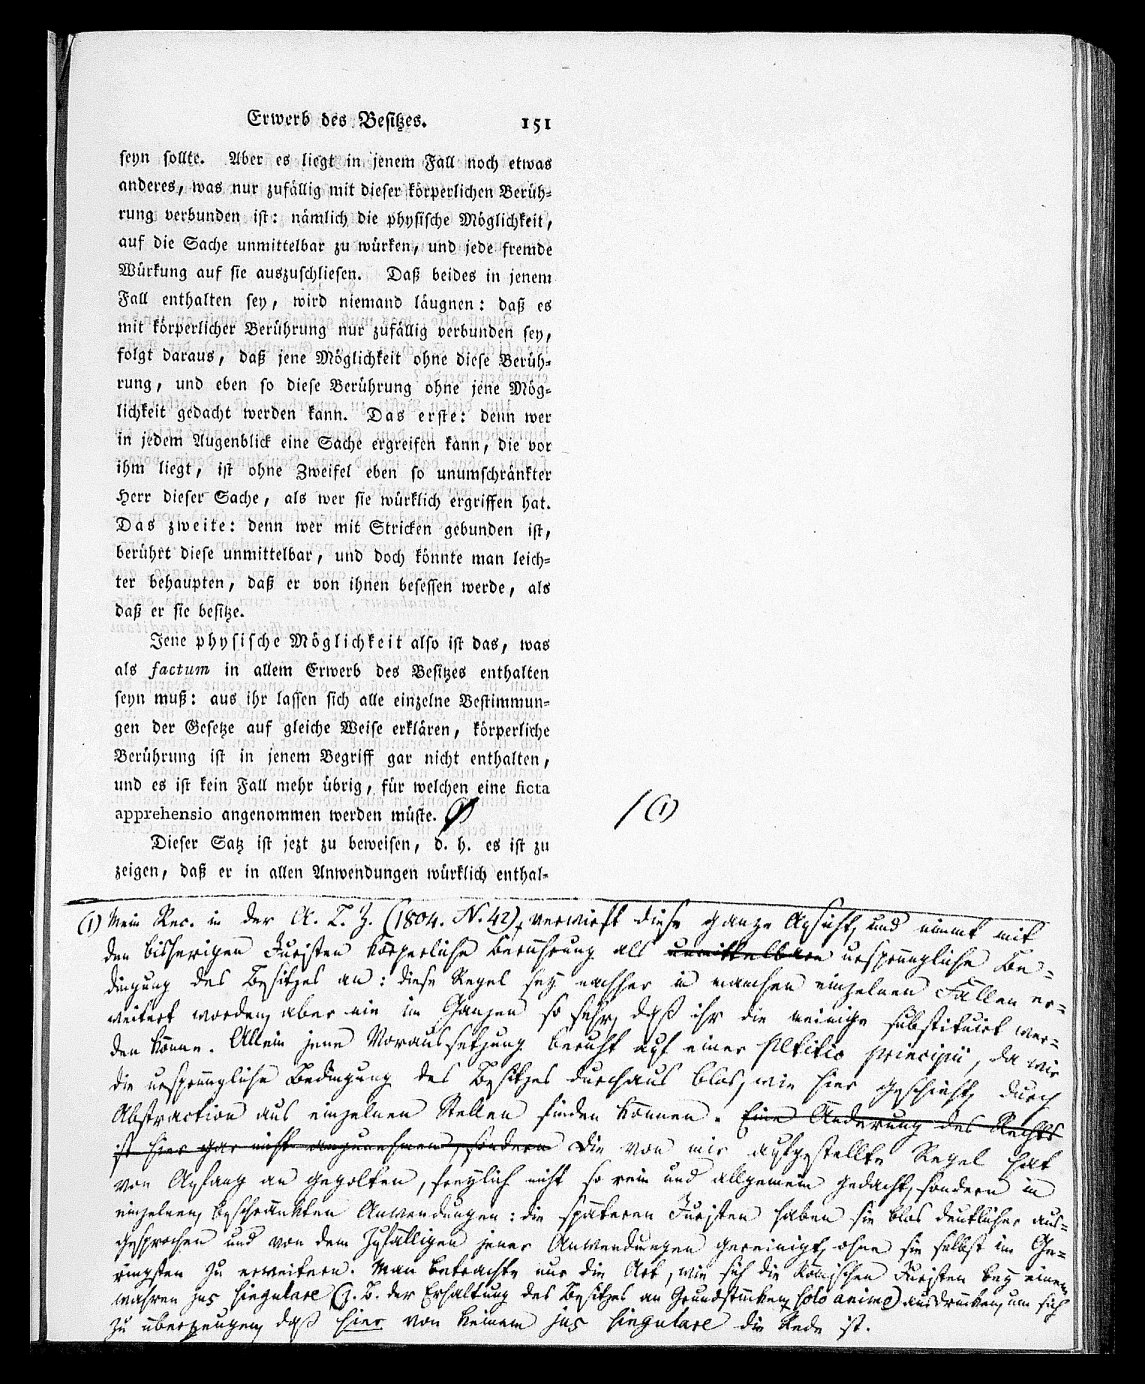 Erwerb des Besitzes. 151
seyn sollte. Aber es liegt in jenem Fall noch etwas
anderes, was nur zufällig mit dieser körperlichen Berüh-
rung verbunden ist: nämlich die physische Möglichkeit,
auf die Sache unmittelbar zu würken, und jede fremde
Würkung auf sie auszuschliesen. Daß beides in jenem
Fall enthalten sey, wird niemand läugnen: daß es
mit körperlicher Berührung nur zufällig verbunden sey,
folgt daraus, daß jene Möglichkeit ohne diese Berüh-
rung, und eben so diese Berührung ohne jene Mög-
lichkeit gedacht werden kann. Das erste: denn wer
in jedem Augenblick eine Sache ergreifen kann, die vor
ihm liegt, ist ohne Zweifel eben so unumschränkter
Herr dieser Sache, als wer sie würklich ergriffen hat.
Das zweite: denn wer mit Stricken gebunden ist,
berührt diese unmittelbar, und doch könnte man leich-
ter behaupten, daß er von ihnen besessen werde, als
daß er sie besitze.
Jene physische Möglichkeit also ist das, was
als factum in allem Erwerb des Besitzes enthalten
seyn muß: aus ihr lassen sich alle einzelne Bestimmun-
gen der Gesetze auf gleiche Weise erklären, körperliche
Berührung ist in jenem Begriff gar nicht enthalten,
und es ist kein Fall mehr übrig, für welchen eine ficta
apprehensio angenommen werden müste. (1)
/ (1)
Dieser Satz ist jezt zu beweisen, d. h. es ist zu
zeigen, daß er in allen Anwendungen würklich enthal-
(1) Mein Rec. in der A. L. Z. (1804. N. 42), verwirft diese ganze Ansicht, und nimmt mit
den bisherigen Juristen körperliche Berührung als unmittelbare ursprüngliche Be-
dingung des Besitzes an: diese Regel sey nachher in manchen einzelnen Fällen er-
weitert worden, aber nie im Ganzen so sehr, daß ihr die meinige substituirt wer-
den könne. Allein jene Voraussetzung beruht auf einer petitio principii, da wir
die ursprüngliche Bedingung des Besitzes durchaus blos, wie hier geschieht, durch
Abstraction aus einzelnen Stellen finden können. Eine Änderung des Rechts
ist hier gar nicht anzunehmen, sondern die von mir aufgestellte Regel hat
von Anfang an gegolten, freylich nicht so rein und allgemein gedacht, sondern in
einzelnen, beschränkten Anwendungen: die späteren Juristen haben sie blos deutlicher aus-
gesprochen und von dem Zufälligen jener Anwendungen gereinigt, ohne sie selbst im Ge-
ringsten zu erweitern. Man betrachte nur die Art, wie sich die Römischen Juristen bey einem
wahren jus singulare (z. B. der Erhaltung des Besitzes an Grundstücken, solo animo) ausdrücken, um sich
zu überzeugen, daß hier von keinem jus singulare die Rede ist.